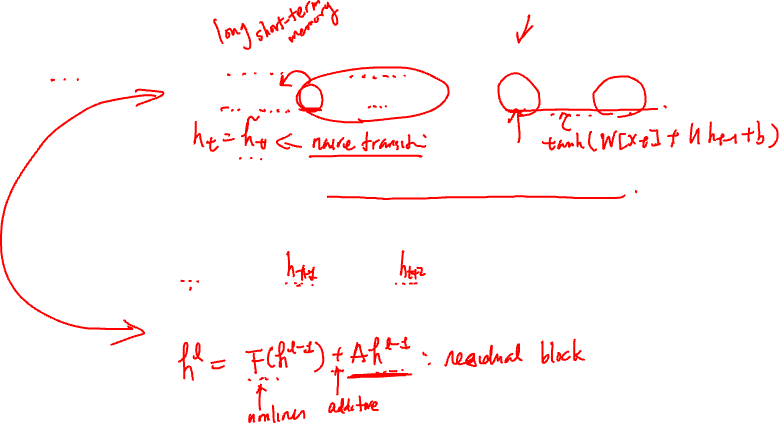 long short-term
memory
...
h_t = h̃_t ← naive transiti
tanh(W[x_t] + U h_{t-1} + b)
h_{t+1} h_{t+2}
h^l = F(h^{l-1}) + Ah^{l-1} : residual block
nonlinear additive